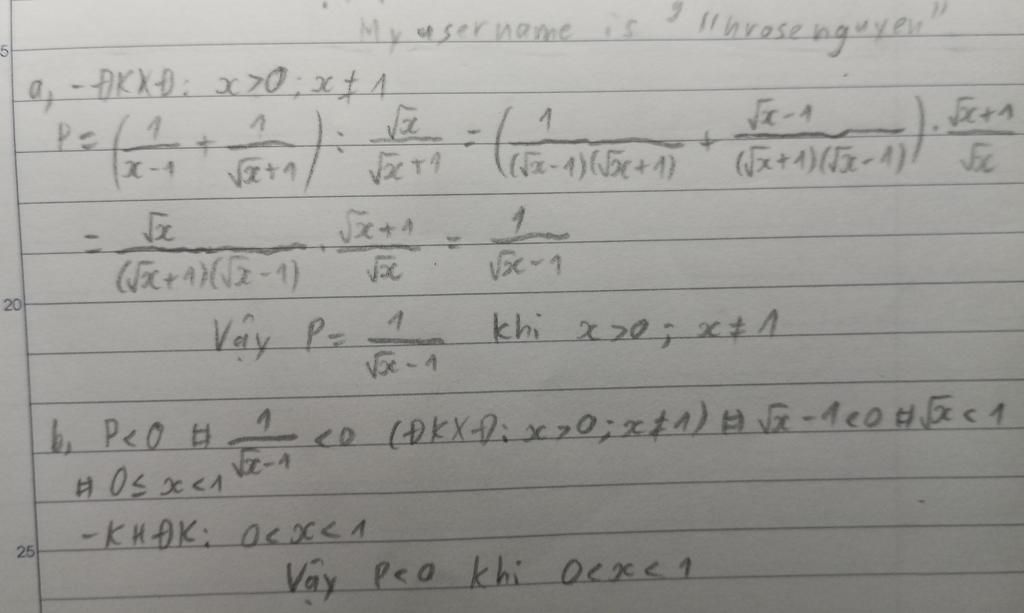 My username is "nrosenguyen"
5
a, - ĐKXĐ: x>0; x≠1
P = (1/(x-1) + 1/(√x+1)) : √x/(√x+1) = (1/((√x-1)(√x+1)) + (√x-1)/((√x+1)(√x-1))) . (√x+1)/√x
= √x/((√x+1)(√x-1)) . (√x+1)/√x = 1/(√x-1)
20
Vậy P = 1/(√x-1) khi x>0; x≠1
b, P<0 ⇔ 1/(√x-1) <0 (ĐKXĐ: x>0; x≠1) ⇔ √x-1<0 ⇔ √x<1
⇔ 0≤x<1
- KHĐK: 0<x<1
25
Vậy P<0 khi 0<x<1